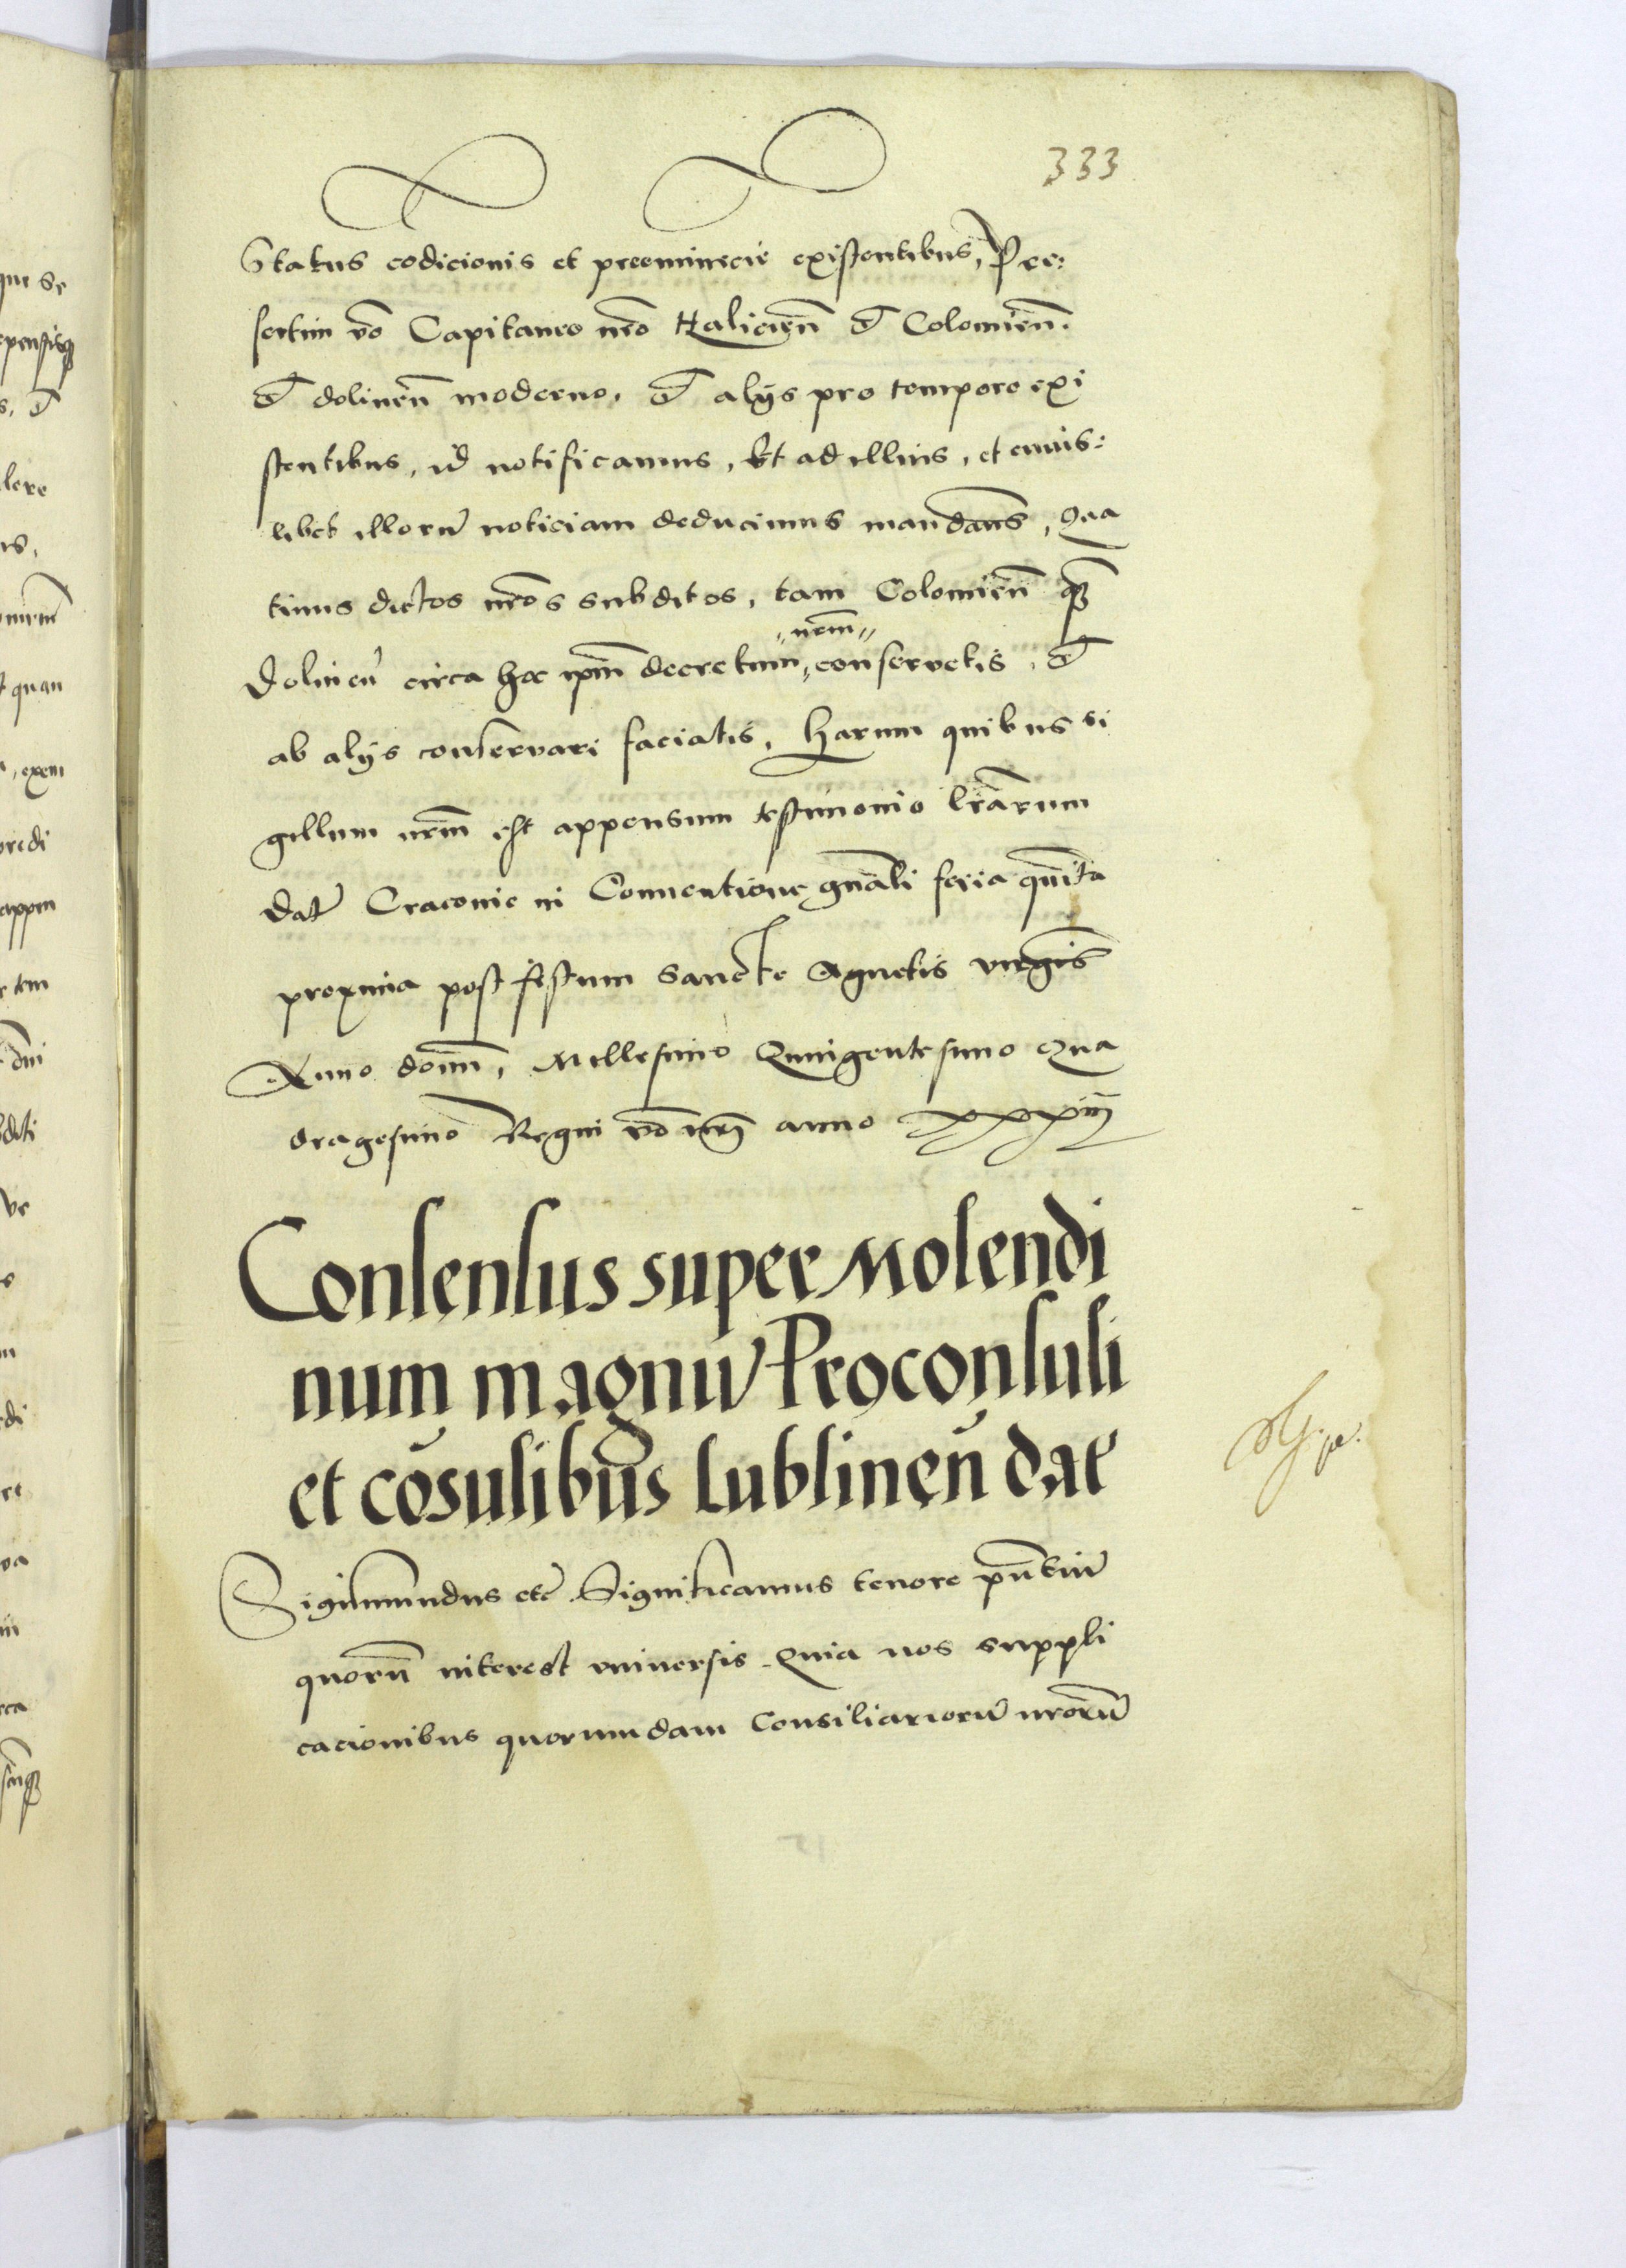 333
Status codicionis et preeminecie existentibus, Pre:
sertim vo Capitaneo nro Halicien et Colomien.
et dolinen moderno, et alijs pro tempore exi
stentibus, id notificamus, et ad illius, et cuius:
libet illoru noticiam deducimus mandans, Qua
tinus dictos nros subditos, tam Colomien qz
Dolinen circa hoc ipm decretum nrm conservetis, et
ab alijs conservari faciatis, Harum quibus si
gillum nrm est appensum testimonio lrarum
Dat Cracovie in Conventione gnali feria quinta
proxima post festum Sancte Agnetis virginis
Anno domi, Millesimo Quingentesimo Qua
dragesimo Regni vo nri anno xxxiiij
Consensus super Molendi
num magnu Proconsuli
et cosulibus Lublinen dat
Sigismundus etc Significamus tenore pntiu
quoru interest universis. Quia nos suppli
cacionibus quorumdam Consiliarioru nroru